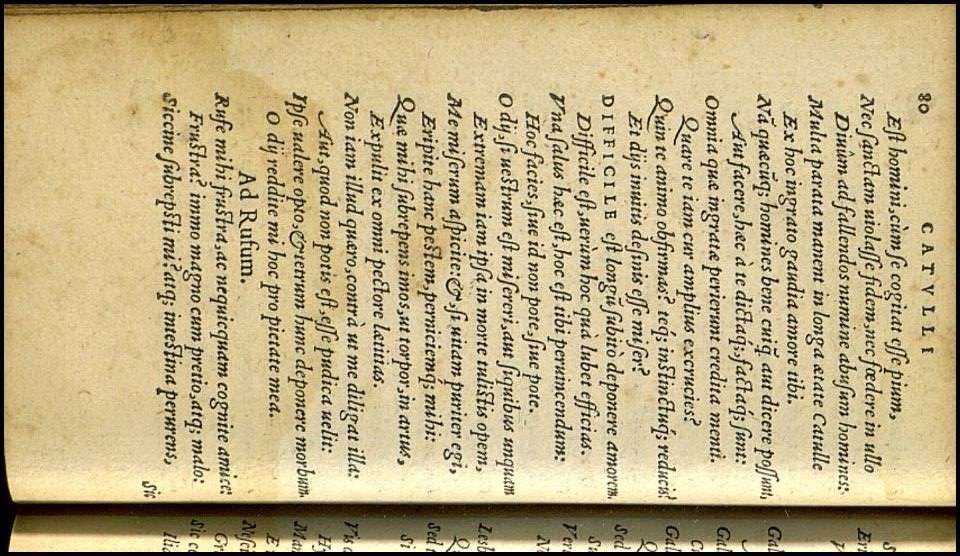 80 CATVLLI
Est homini, cùm se cogitat esse pium,
Nec sanctam uiolasse fidem, nec fœdere in ullo
Diuûm ad fallendos numine abusum homines:
Multa parata manent in longa ætate Catulle
Ex hoc ingrato gaudia amore tibi.
Nã quæcũq; homines bene cuiq̃ aut dicere possunt,
Aut facere, hæc à te dictaq́; factaq́; sunt:
Omnia quæ ingratæ perierunt credita menti.
Quare te iam cur amplius excrucies?
Quin te animo obfirmas? teq́; instinctuq́; reducis?
Et dijs inuitis desinis esse miser?
DIFFICILE est longũ subitò deponere amorem.
Difficile est, uerùm hoc quà lubet efficias.
Vna salus hæc est, hoc est tibi peruincendum:
Hoc facies, siue id non pote, siue pote.
O dij, si uestrum est misereri, aut si quibus unquam
Extremam iam ipsa in morte tulistis opem,
Me miserum aspicite: &, si uitam puriter egi,
Eripite hanc pestem, perniciemq́; mihi:
Quæ mihi subrepens imos, ut torpor, in artus,
Expulit ex omni pectore lætitias.
Non iam illud quæro, contrà ut me diligat illa:
Aut, quod non potis est, esse pudica uelit:
Ipse ualere opto, & tetrum hunc deponere morbum.
O dij reddite mi hoc pro pietate mea.
Ad Rufum.
Rufe mihi frustra, ac nequicquam cognite amice:
Frustra? immo magno cum pretio, atq; malo:
Siccine subrepsti mi? atq; intestina perurens,
Sic